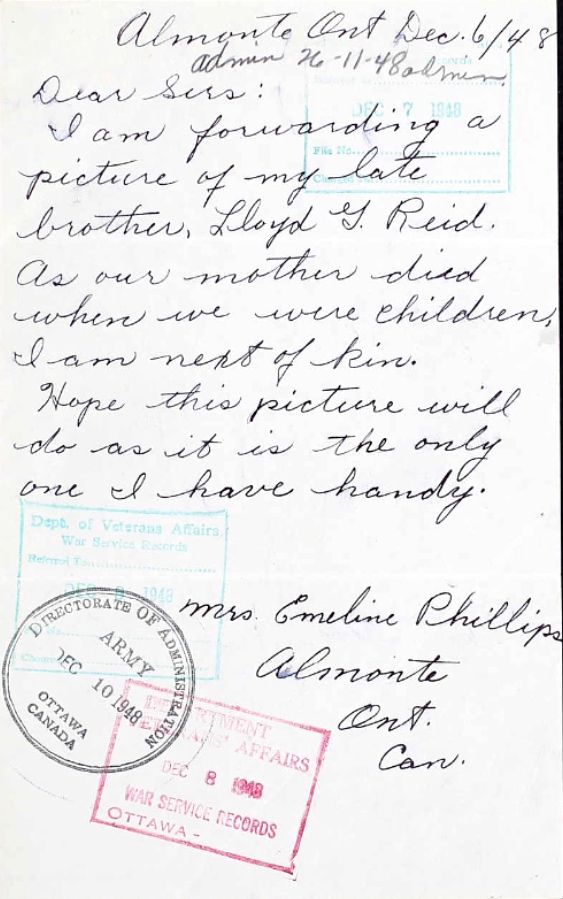 Almonte Ont Dec. 6/48
admin 26-11-48 admin
DEC 7 1948
File No.
Dear Sirs:
I am forwarding a
picture of my late
brother, Lloyd G. Reid.
As our mother died
when we were children,
I am next of kin.
Hope this picture will
do as it is the only
one I have handy.
Dept. of Veterans Affairs
War Service Records
Referred To
1948
Mrs. Emeline Phillips
Almonte
Ont.
Can.
DIRECTORATE OF ADMINISTRATION
ARMY
DEC 10 1948
OTTAWA
CANADA
DEPARTMENT
VETERANS' AFFAIRS
DEC 8 1948
WAR SERVICE RECORDS
OTTAWA -